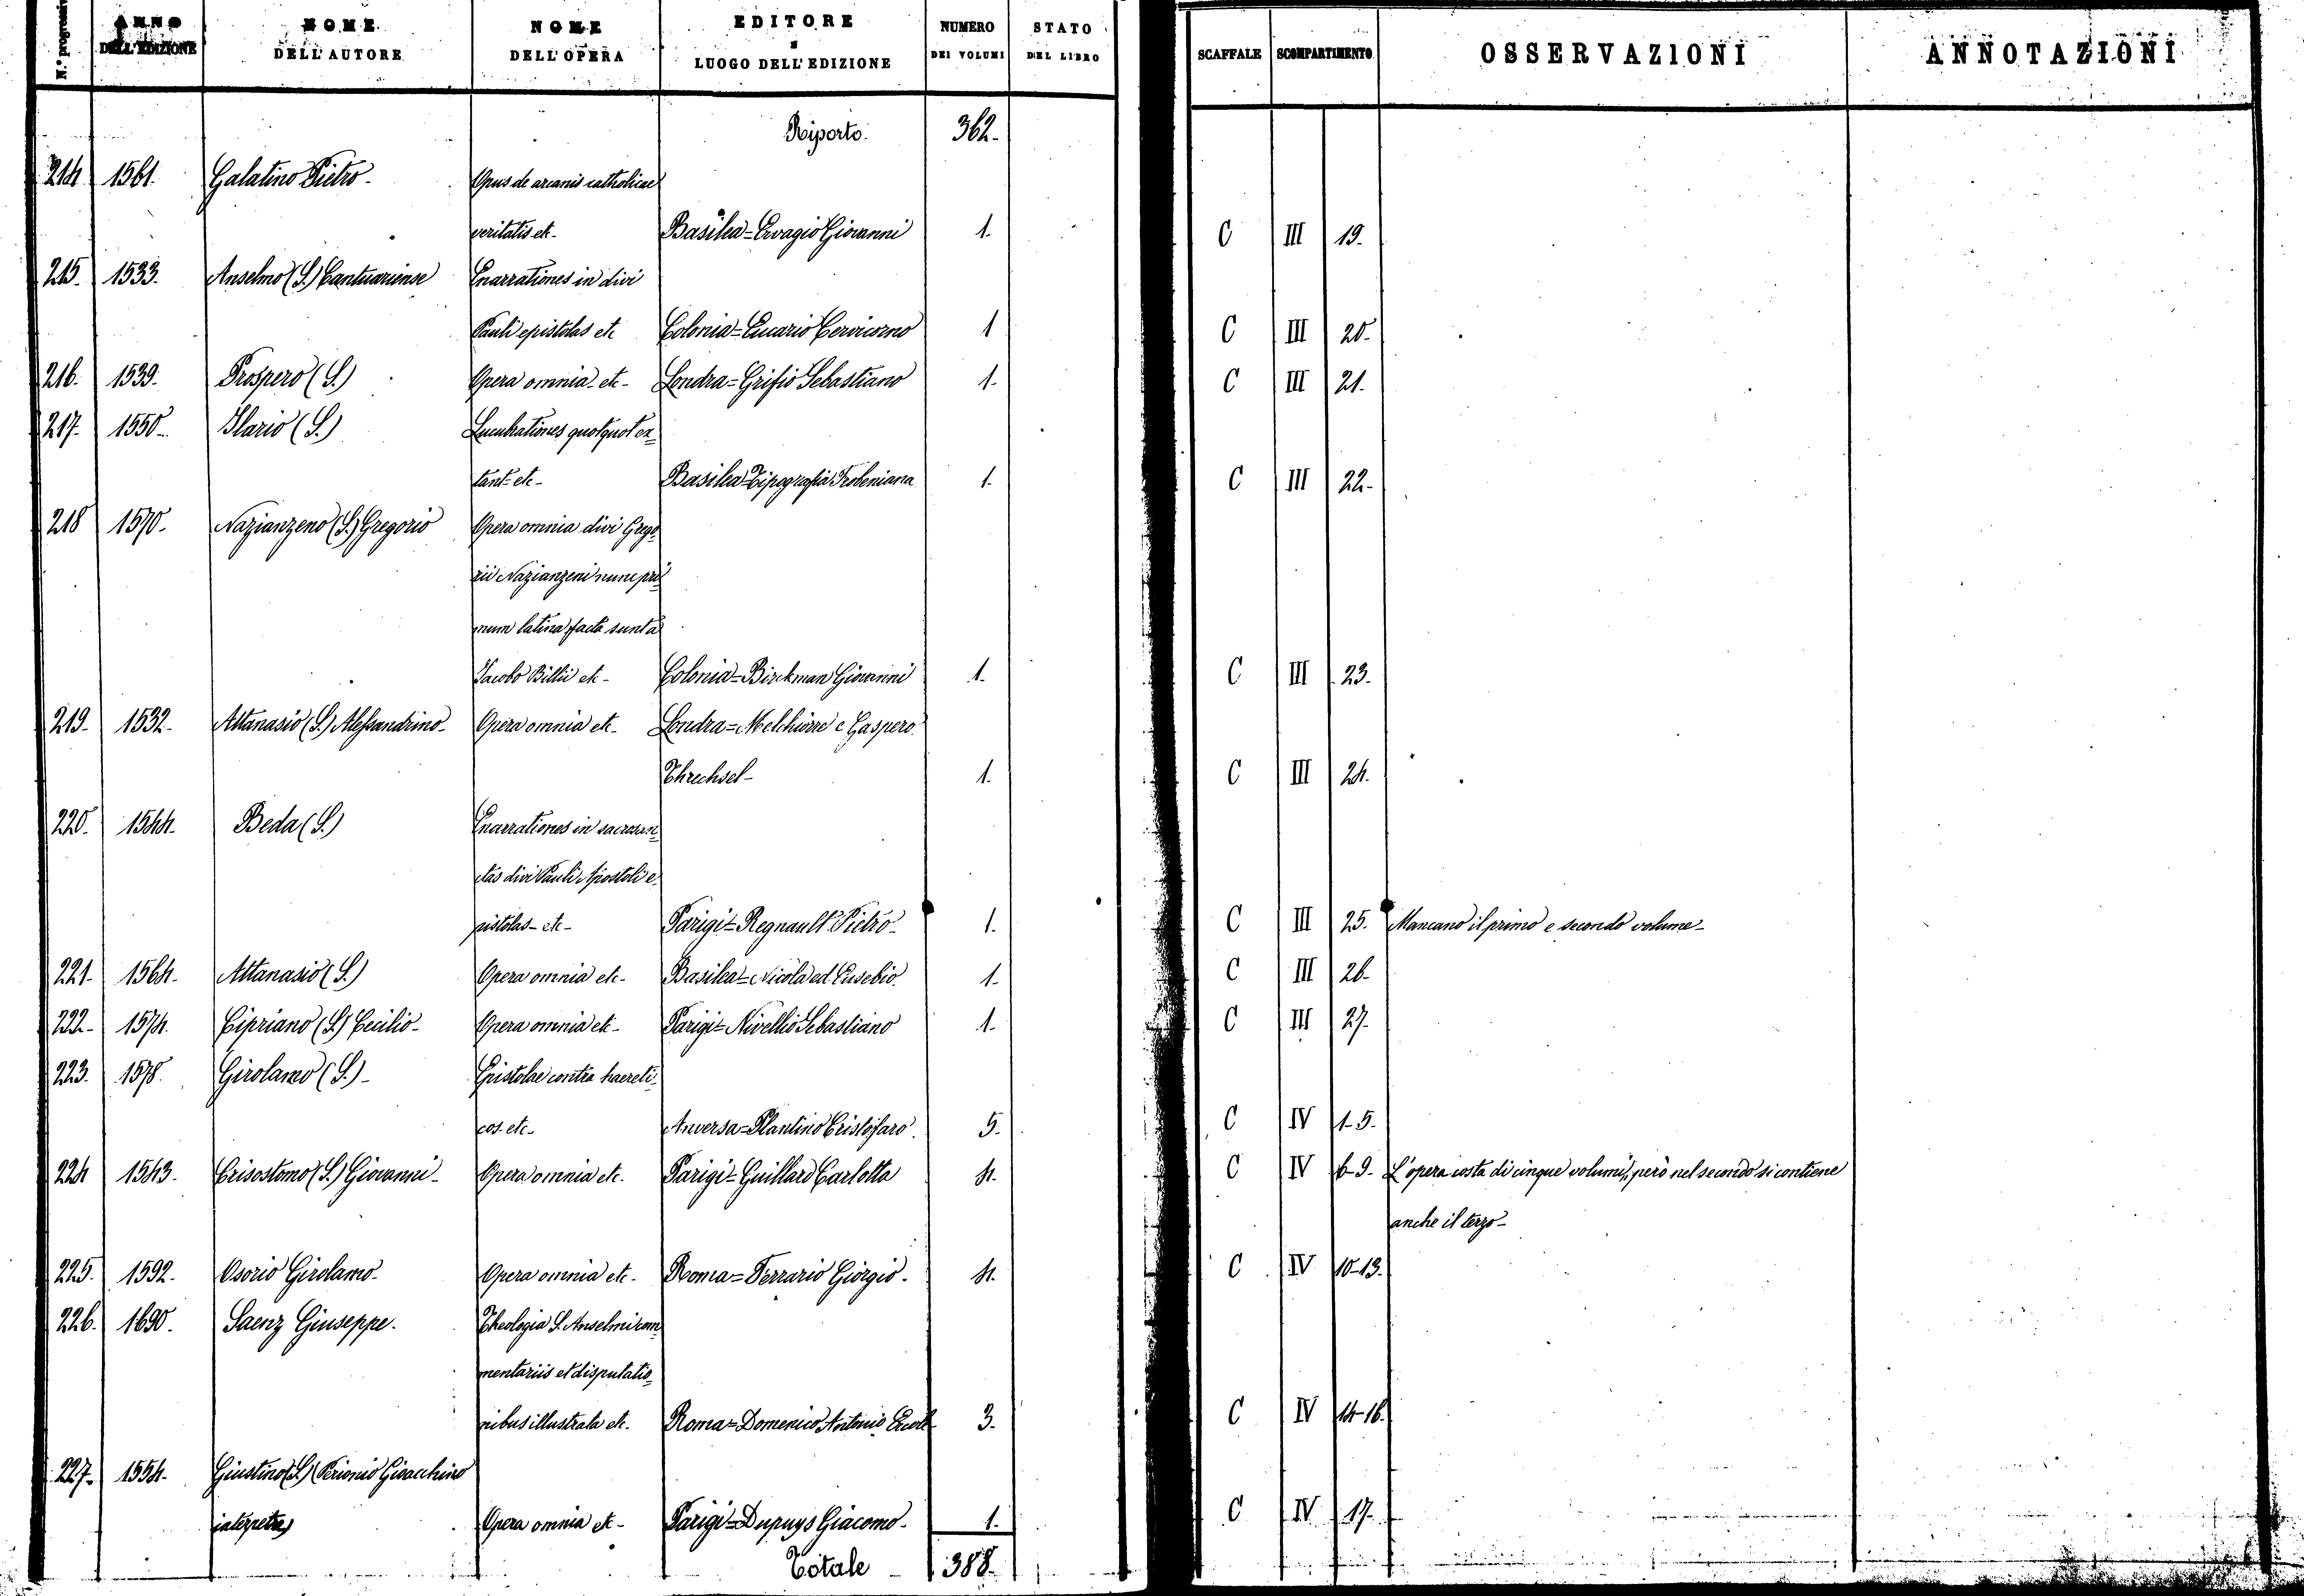 N.° progressivo ANNO DELL'EDIZIONE NOME DELL'AUTORE NOME DELL'OPERA EDITORE E LUOGO DELL'EDIZIONE NUMERO DEI VOLUMI STATO DEL LIBRO SCAFFALE SCOMPARTIMENTO OSSERVAZIONI ANNOTAZIONI
Riporto. 362.
214 1561. Galatino Pietro. Opus de arcanis catholicae
veritatis etc. Basilea = Ervagio Giovanni 1. C III 19.
215. 1533. Anselmo (S.) Cantuariense Enarrationes in divi
Pauli epistolas etc Colonia = Eucario Cervicorno 1 C III 20.
216. 1539. Prospero (S.) Opera omnia etc. Londra = Grifio Sebastiano 1. C III 21.
217. 1550. Ilario (S.) Lucubrationes quotquot ex=
tant etc. Basilea = Tipografia Frobeniana 1. C III 22.
218 1570. Nazianzeno (S.) Gregorio Opera omnia divi Grego
rii Nazianzeni nunc pri=
mum latina facta sunt a
Jacobo Billii etc. Colonia = Birckman Giovanni 1. C III 23.
219. 1532. Attanasio (S.) Alessandrino Opera omnia etc. Londra = Melchiorre e Gaspero
Threchsel 1. C III 24.
220. 1544. Beda (S.) Enarrationes in sacrosan=
ctas divi Pauli Apostoli e=
pistolas etc. Parigi = Regnault Pietro 1. C III 25. Mancano il primo e secondo volume
221. 1564. Attanasio (S.) Opera omnia etc. Basilea = Nicola ed Eusebio 1. C III 26.
222. 1574. Cipriano (S.) Cecilio Opera omnia etc. Parigi = Nivellio Sebastiano 1. C III 27.
223. 1578. Girolamo (S.) Epistolae contra haereti=
cos. etc. Anversa = Plantino Cristofaro 5. C IV 1-5.
224 1543. Crisostomo (S.) Giovanni Opera omnia etc. Parigi = Guillard Carlotta 4. C IV 6-9. L'opera costa di cinque volumi, però nel secondo si contiene
anche il terzo
225. 1592. Osorio Girolamo. Opera omnia etc. Roma = Ferrario Giorgio. 4. C IV 10-13.
226. 1690. Saenz Giuseppe. Theologia S. Anselmi com
mentariis et disputatio=
nibus illustrata etc. Roma = Domenico Antonio Ercole 3. C IV 14-16.
227. 1554. Giustino (S.) (Perionio Gioacchino
interprete) Opera omnia etc. Parigi = Dupuys Giacomo 1. C IV 17.
Totale 388.